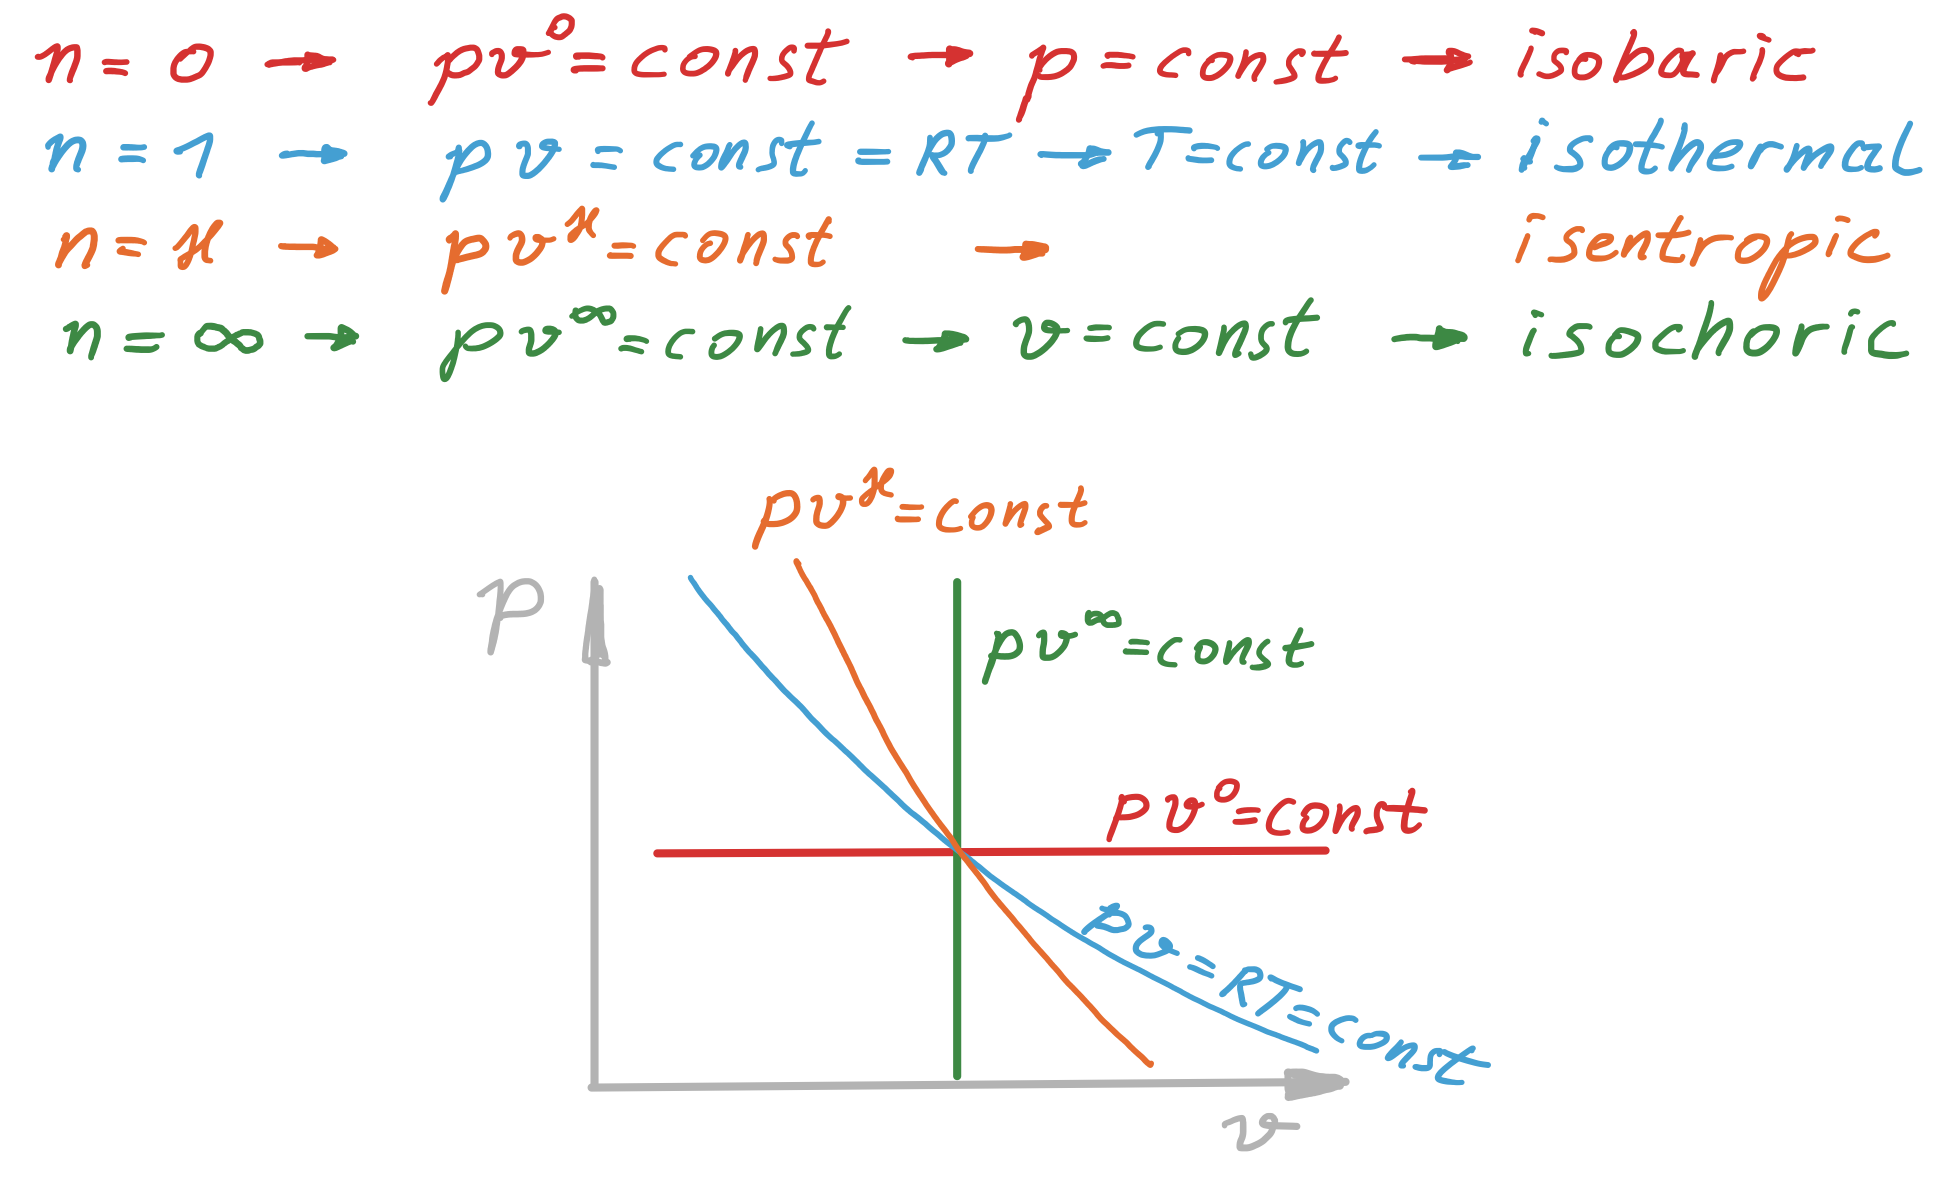 n = 0 → pv⁰ = const → p = const → isobaric
n = 1 → pv = const = RT → T = const → isothermal
n = ϰ → pv^ϰ = const → isentropic
n = ∞ → pv^∞ = const → v = const → isochoric
pv^ϰ = const
p
pv^∞ = const
pv⁰ = const
pv = RT = const
v